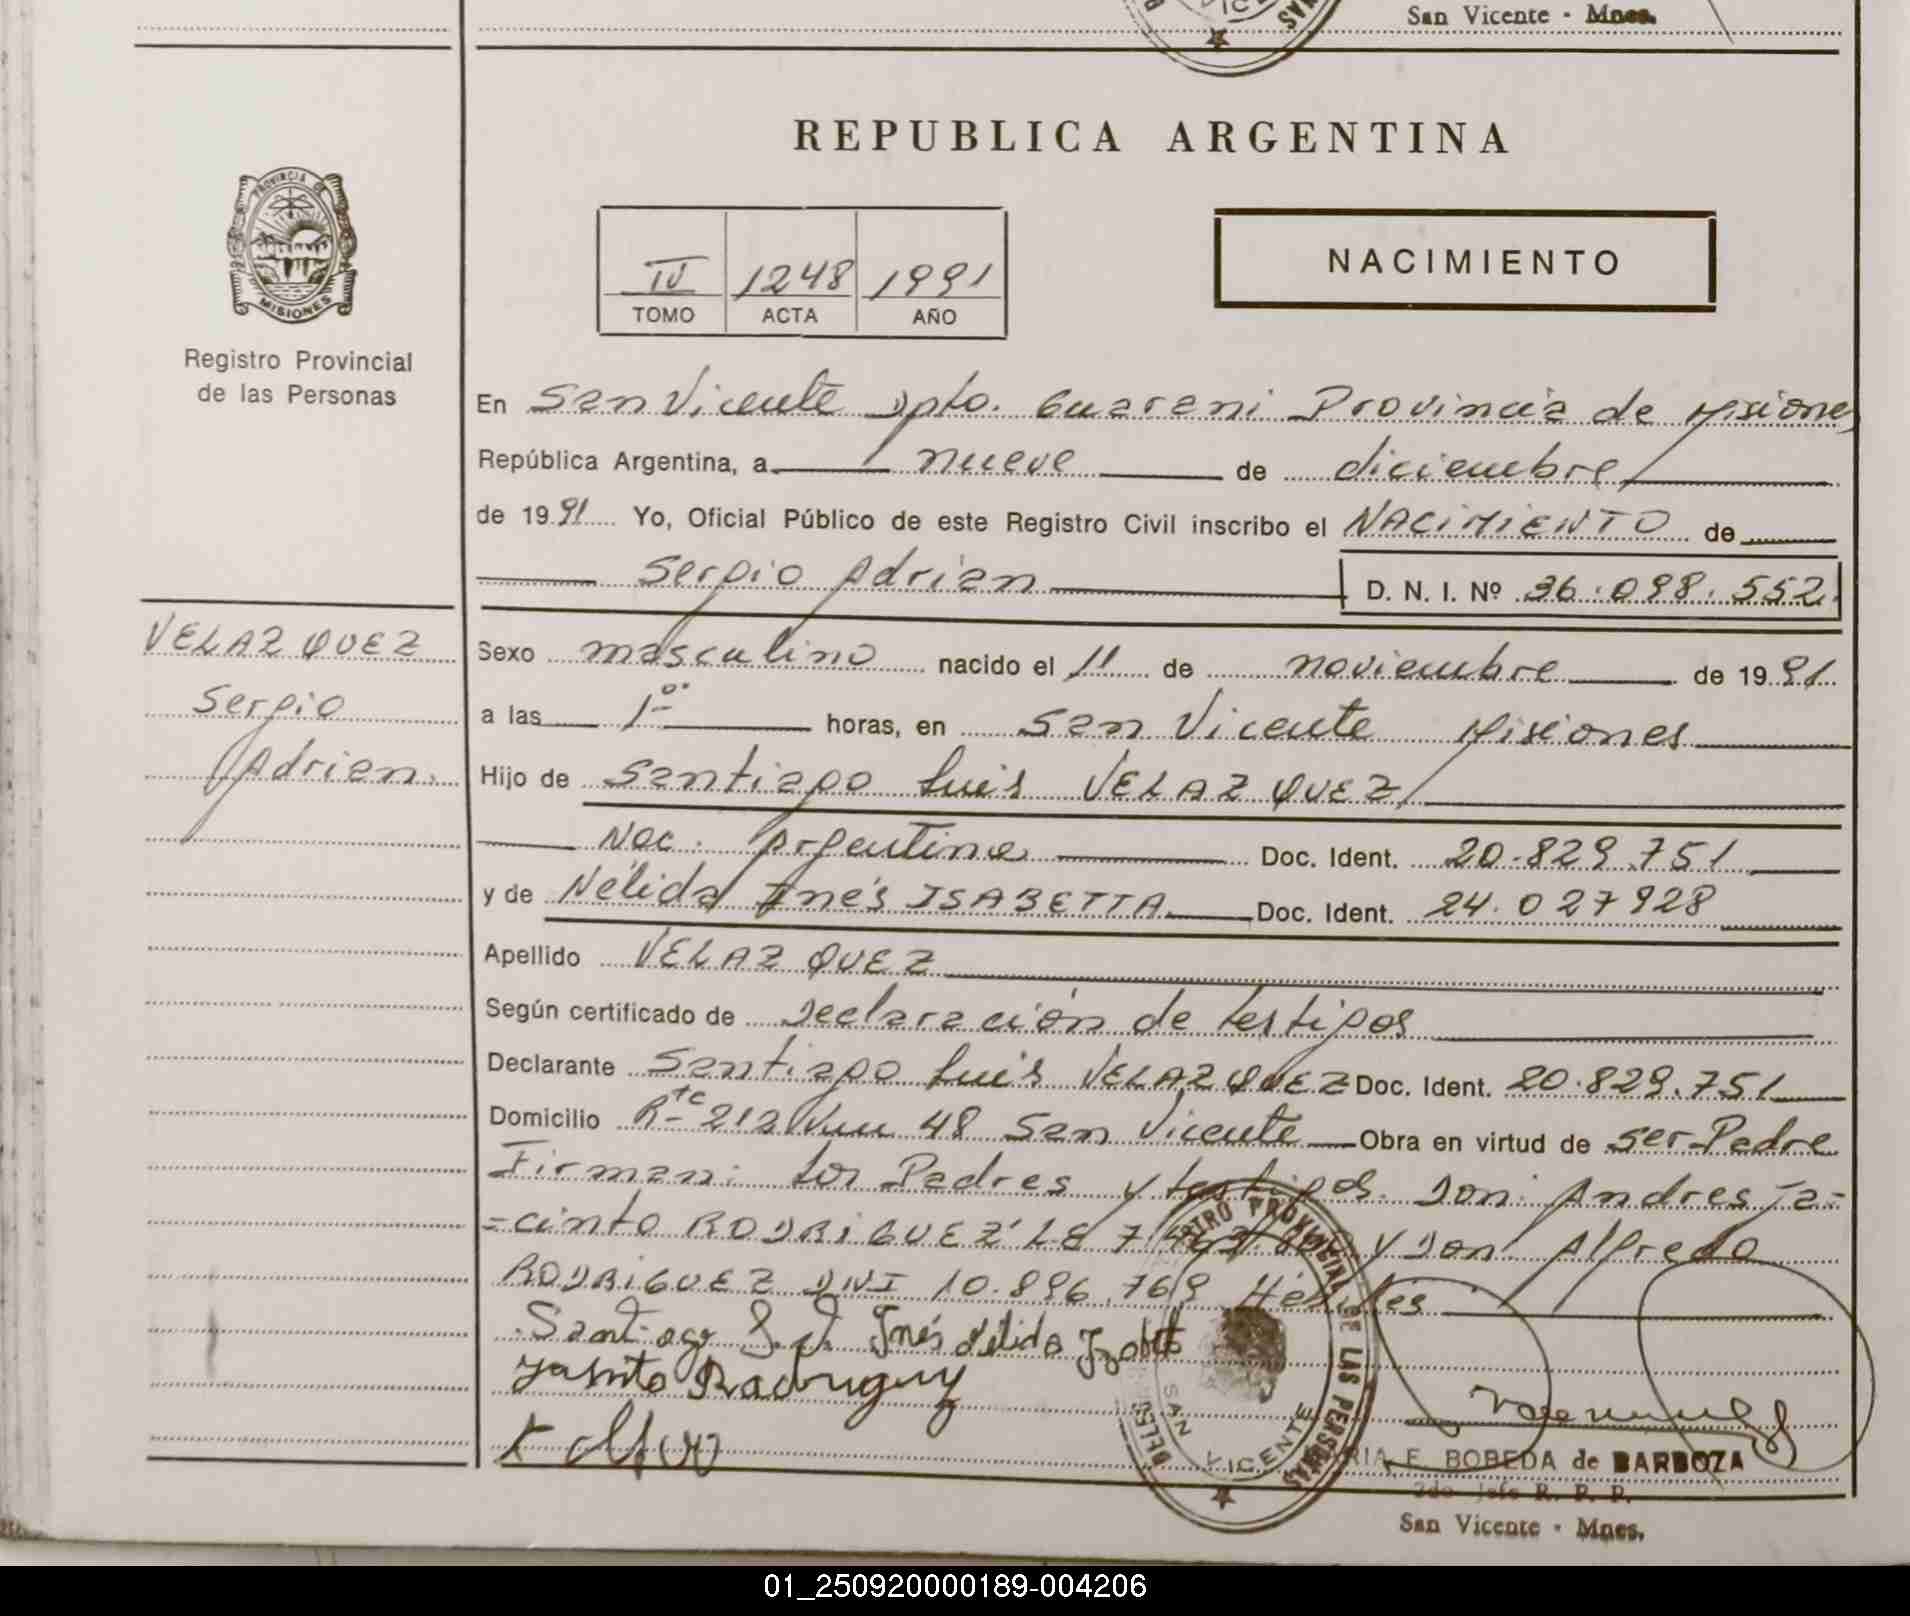 San Vicente - Mnes.
REPUBLICA ARGENTINA
PROVINCIA DE
MISIONES
Registro Provincial
de las Personas
IV 1248 1991
TOMO ACTA AÑO
NACIMIENTO
En San Vicente Dpto. Guarani Provincia de Misiones
República Argentina, a nueve de diciembre
de 1991 Yo, Oficial Público de este Registro Civil inscribo el NACIMIENTO de
Sergio Adrian D. N. I. Nº 36.098.552
VELAZQUEZ
Sergio
Adrian.
Sexo masculino nacido el 11 de noviembre de 1991
a las 1 horas, en San Vicente Misiones
Hijo de Santiago Luis VELAZQUEZ
Nac. Argentina Doc. Ident. 20.829.751
y de Nélida Inés ISABETTA Doc. Ident. 24.027928
Apellido VELAZQUEZ
Según certificado de Declaración de testigos
Declarante Santiago Luis VELAZQUEZ Doc. Ident. 20.829.751
Domicilio Rta 212 48 San Vicente Obra en virtud de ser Padre
Firman: Los Padres y testigos. Don: Andres Ja=
=cinto RODRIGUEZ LE y Don Alfredo
RODRIGUEZ DNI 10.896.769
Santiago Inés Nélida
Rodriguez
REGISTRO PROVINCIAL DE LAS PERSONAS
SAN VICENTE
E. BOBEDA de BARBOZA
2do Jefe R. P. P.
San Vicente - Mnes.
01_250920000189-004206